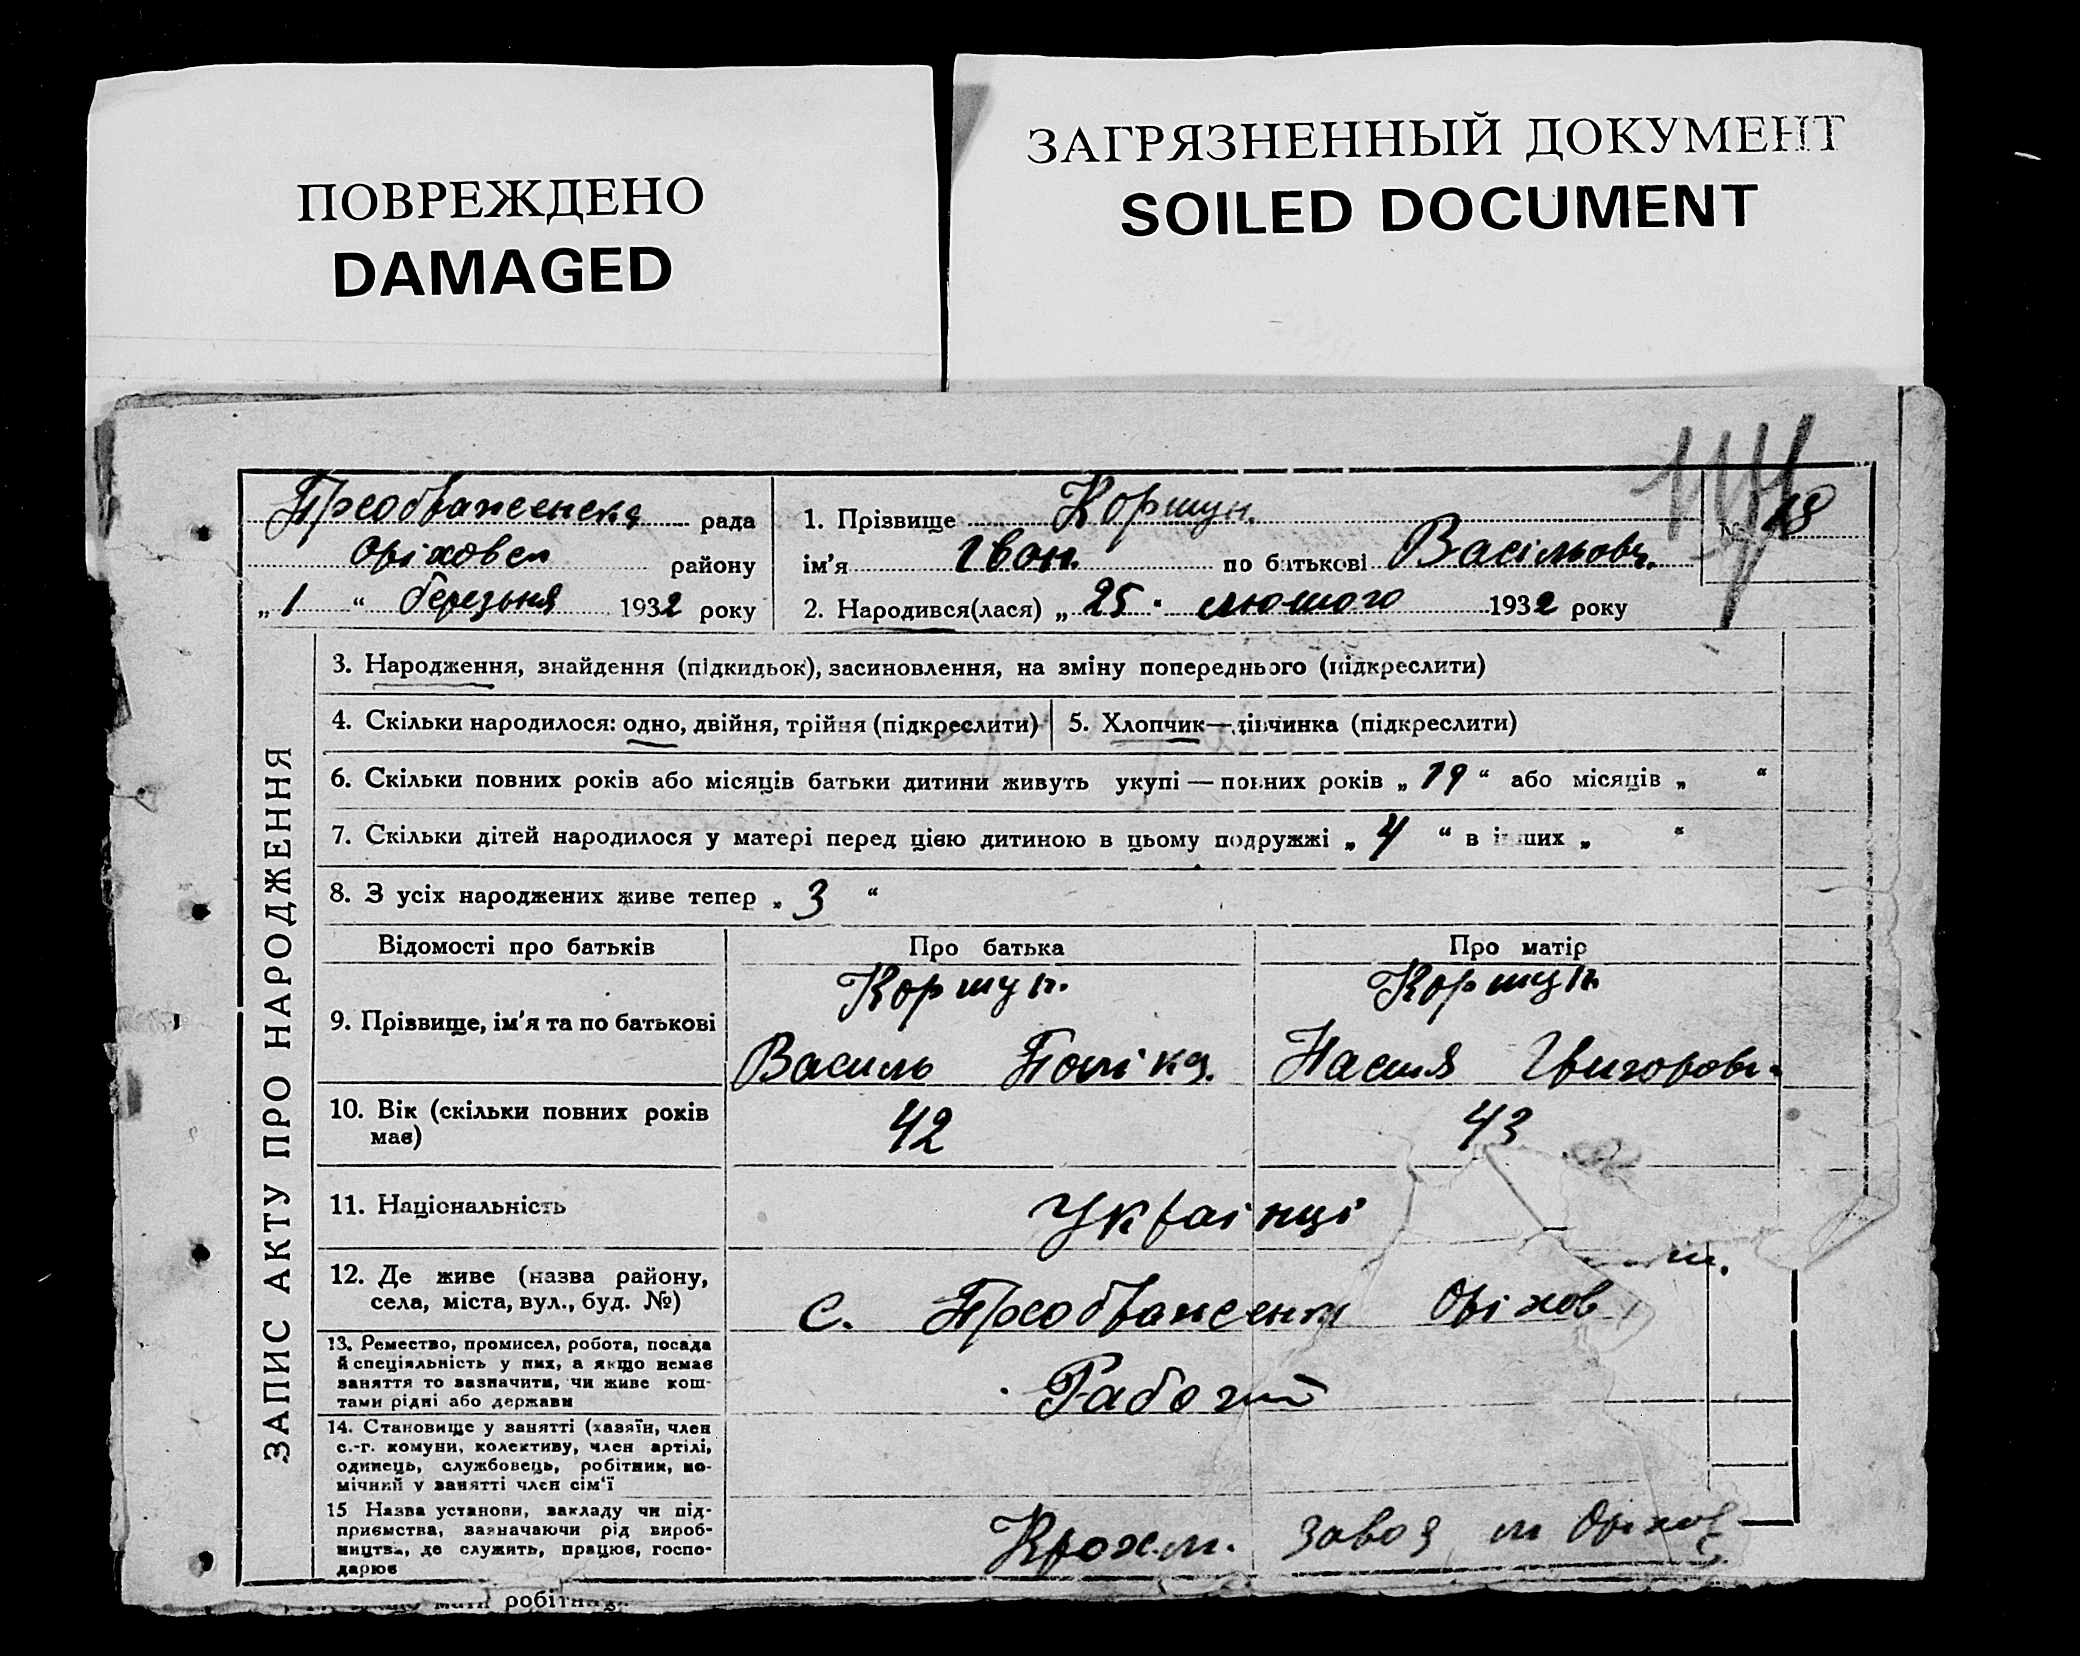 ПОВРЕЖДЕНО
DAMAGED
ЗАГРЯЗНЕННЫЙ ДОКУМЕНТ
SOILED DOCUMENT
Преображенська рада
Оріховск району
„ 1 “ березьня 1932 року
1. Прізвище Коршун.
ім'я Іван. по батькові Васильов.
2. Народився(лася) „ 25 " лютого 1932 року
№ 18
ЗАПИС АКТУ ПРО НАРОДЖЕННЯ
3. Народження, знайдення (підкидьок), засиновлення, на зміну попереднього (підкреслити)
4. Скільки народилося: одно, двійня, трійня (підкреслити)
5. Хлопчик—дівчинка (підкреслити)
6. Скільки повних років або місяців батьки дитини живуть укупі — повних років „ 19 “ або місяців „ “
7. Скільки дітей народилося у матері перед цією дитиною в цьому подружжі „ 4 “ в інших „ “
8. З усіх народжених живе тепер „ 3 “
Відомості про батьків
Про батька
Про матір
9. Прізвище, ім'я та по батькові
Коршун.
Василь
Коршун
Настя Григоров.
10. Вік (скільки повних років
має)
42
43
11. Національність
Українці
12. Де живе (назва району,
села, міста, вул., буд. №)
с. Преображенка Оріхов
13. Ремество, промисел, робота, посада
й спеціяльність у них, а якщо немає
заняття то зазначити, чи живе кош-
тами рідні або держави
Рабочий
14. Становище у занятті (хазяїн, член
с.-г. комуни, колективу, член артілі,
одинець, службовець, робітник, по-
мічний у занятті член сім'ї
15 Назва установи, закладу чи під-
приємства, зазначаючи рід вироб-
ництва, де служить, працює, госпо-
дарює
Крохм. завод м Оріхов